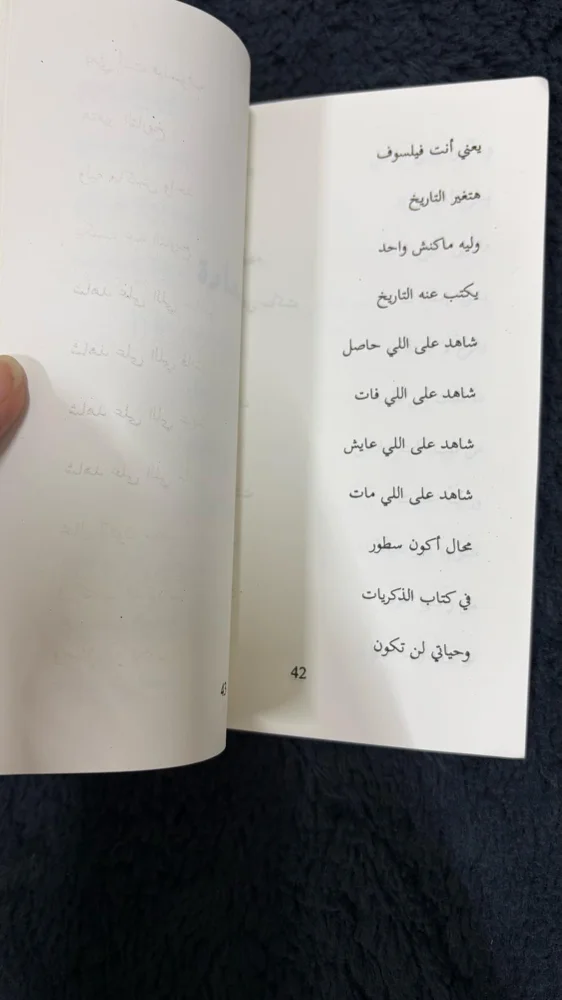 يعني أنت فيلسوف
هتغير التاريخ
وليه ماكنش واحد
يكتب عنه التاريخ
شاهد على اللي حاصل
شاهد على اللي فات
شاهد على اللي عايش
شاهد على اللي مات
محال أكون سطور
في كتاب الذكريات
وحياتي لن تكون
42
43